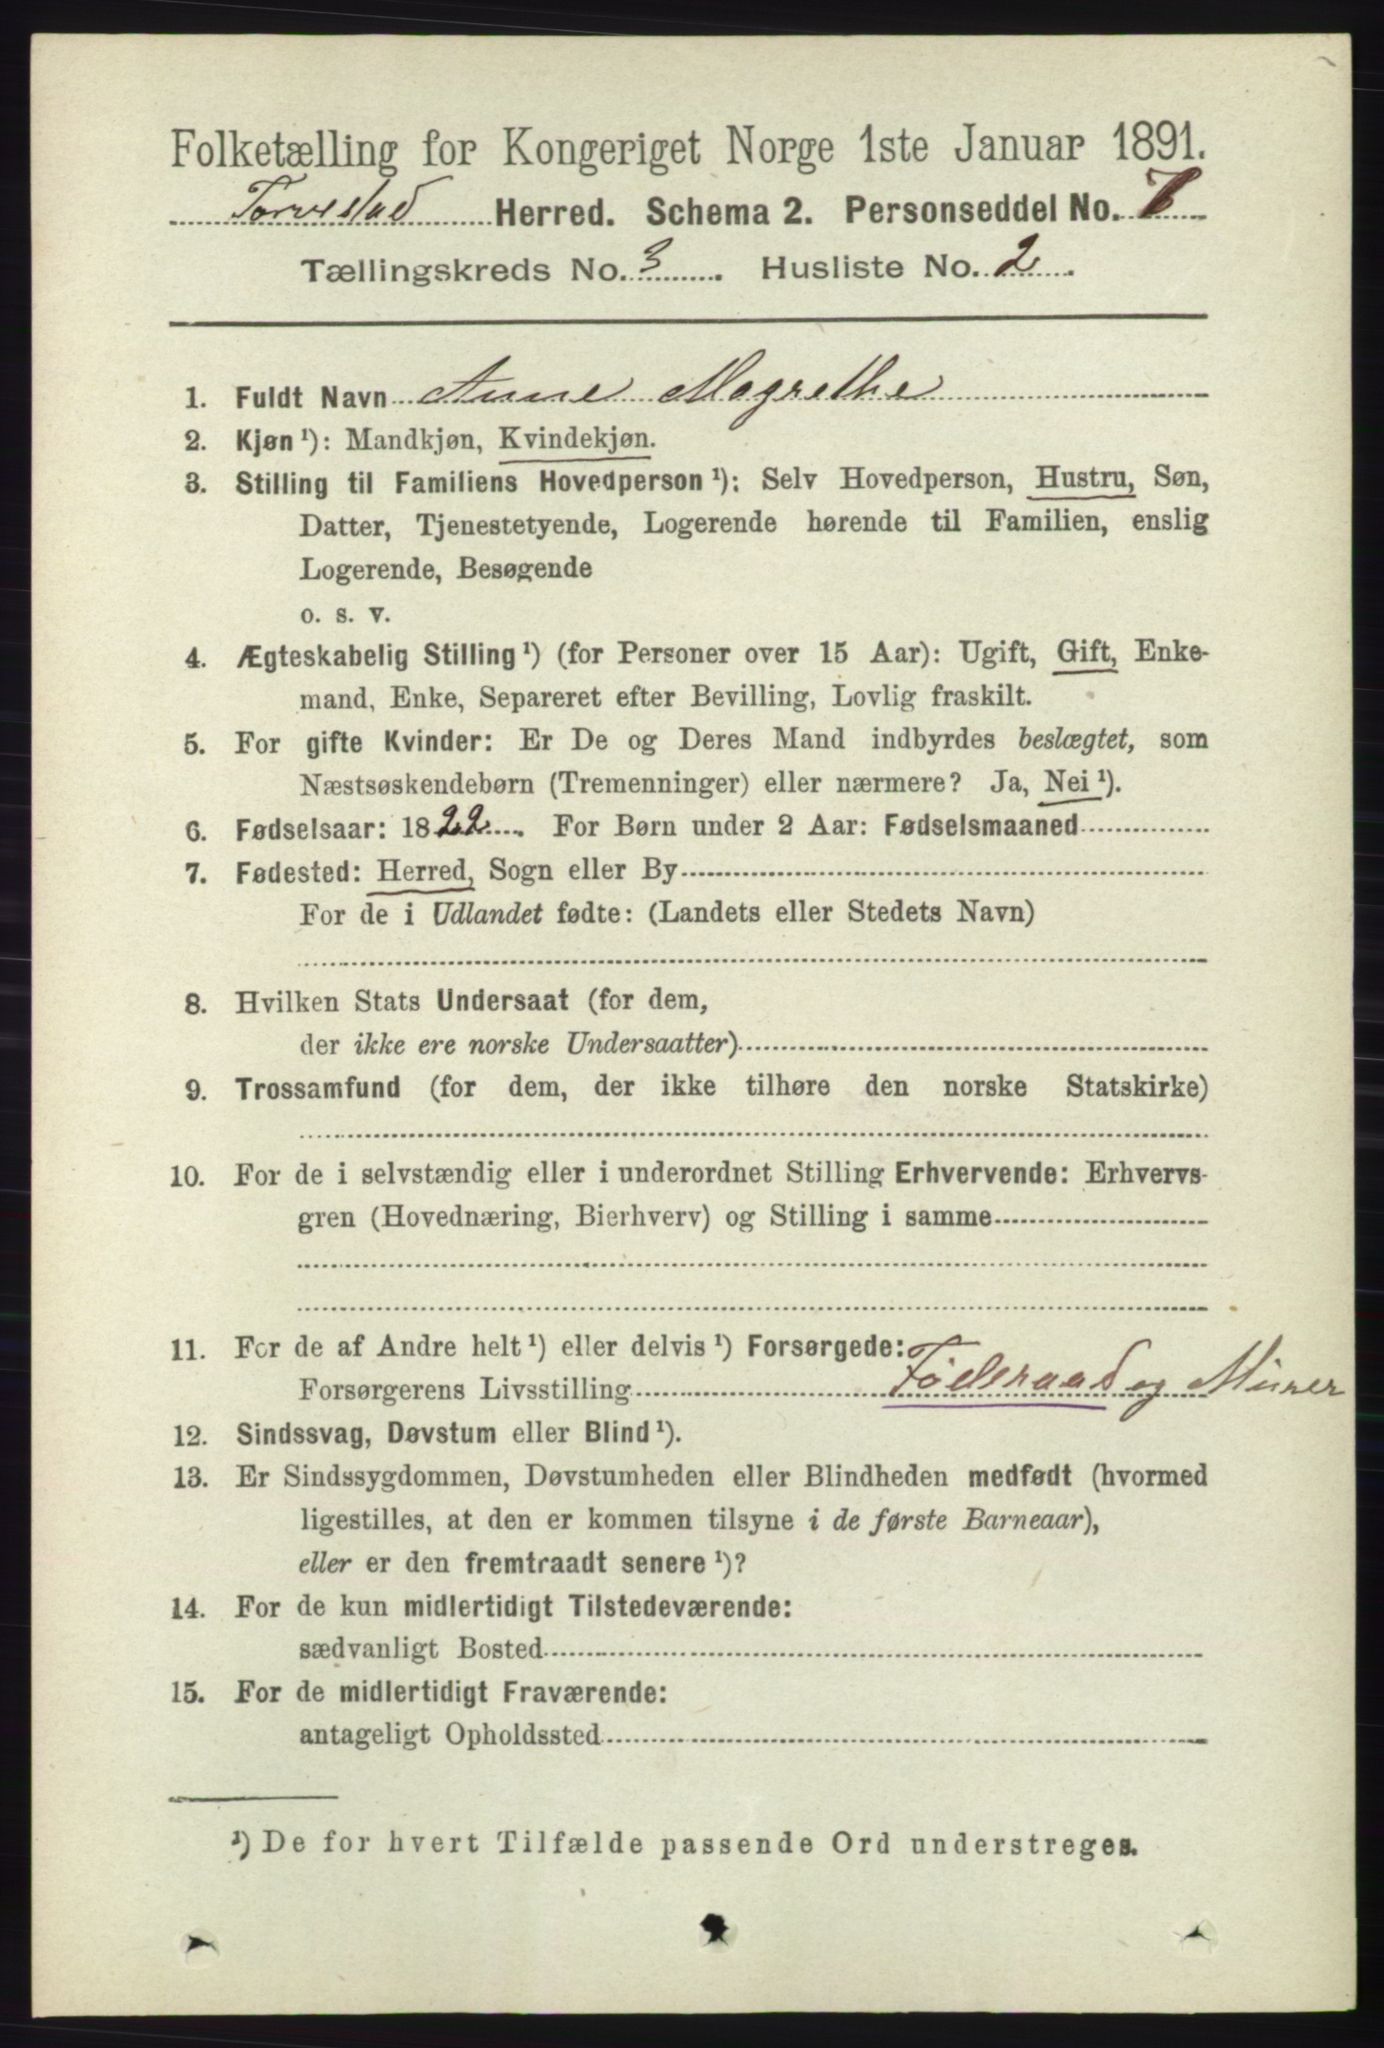 Folketælling for Kongeriget Norge 1ste Januar 1891.
Torvestad Herred. Schema 2. Personseddel No.
Tællingskreds No. 3. Husliste No. 2.
1. Fuldt Navn Anne Magrethe
2. Kjøn ¹): Mandkjøn, Kvindekjøn.
3. Stilling til Familiens Hovedperson ¹): Selv Hovedperson, Hustru, Søn,
Datter, Tjenestetyende, Logerende hørende til Familien, enslig
Logerende, Besøgende
o. s. v.
4. Ægteskabelig Stilling ¹) (for Personer over 15 Aar): Ugift, Gift, Enke-
mand, Enke, Separeret efter Bevilling, Lovlig fraskilt.
5. For gifte Kvinder: Er De og Deres Mand indbyrdes beslægtet, som
Næstsøskendebørn (Tremenninger) eller nærmere? Ja, Nei ¹).
6. Fødselsaar: 1822. For Børn under 2 Aar: Fødselsmaaned
7. Fødested: Herred, Sogn eller By
For de i Udlandet fødte: (Landets eller Stedets Navn)
8. Hvilken Stats Undersaat (for dem,
der ikke ere norske Undersaatter)
9. Trossamfund (for dem, der ikke tilhøre den norske Statskirke)
10. For de i selvstændig eller i underordnet Stilling Erhvervende: Erhvervs-
gren (Hovednæring, Bierhverv) og Stilling i samme
11. For de af Andre helt ¹) eller delvis ¹) Forsørgede:
Forsørgerens Livsstilling Föderaad og Murer
12. Sindssvag, Døvstum eller Blind ¹).
13. Er Sindssygdommen, Døvstumheden eller Blindheden medfødt (hvormed
ligestilles, at den er kommen tilsyne i de første Barneaar),
eller er den fremtraadt senere ¹)?
14. For de kun midlertidigt Tilstedeværende:
sædvanligt Bosted
15. For de midlertidigt Fraværende:
antageligt Opholdssted
¹) De for hvert Tilfælde passende Ord understreges.